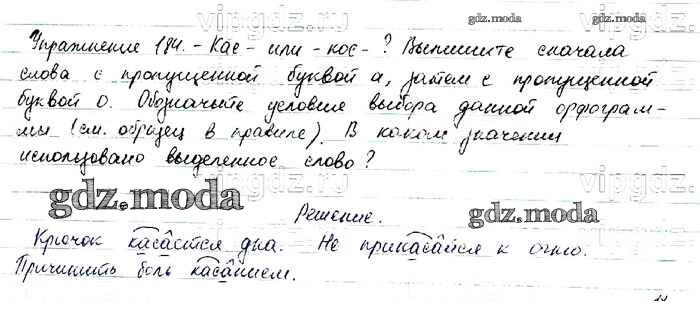 vipgdz.ru
gdz.moda
Упражнение 184. - Кас - или - кос - ? Выпишите сначала
слова с пропущенной буквой а, затем с пропущенной
буквой о. Обозначьте условие выбора данной орфограм-
мы (см. образец в правиле). В каком значении
использовано выделенное слово?
vipgdz.ru
vipgdz.ru
gdz.moda
gdz.moda
Решение.
Крючок касается дна. Не прикасайся к огню.
Причинить боль касанием.